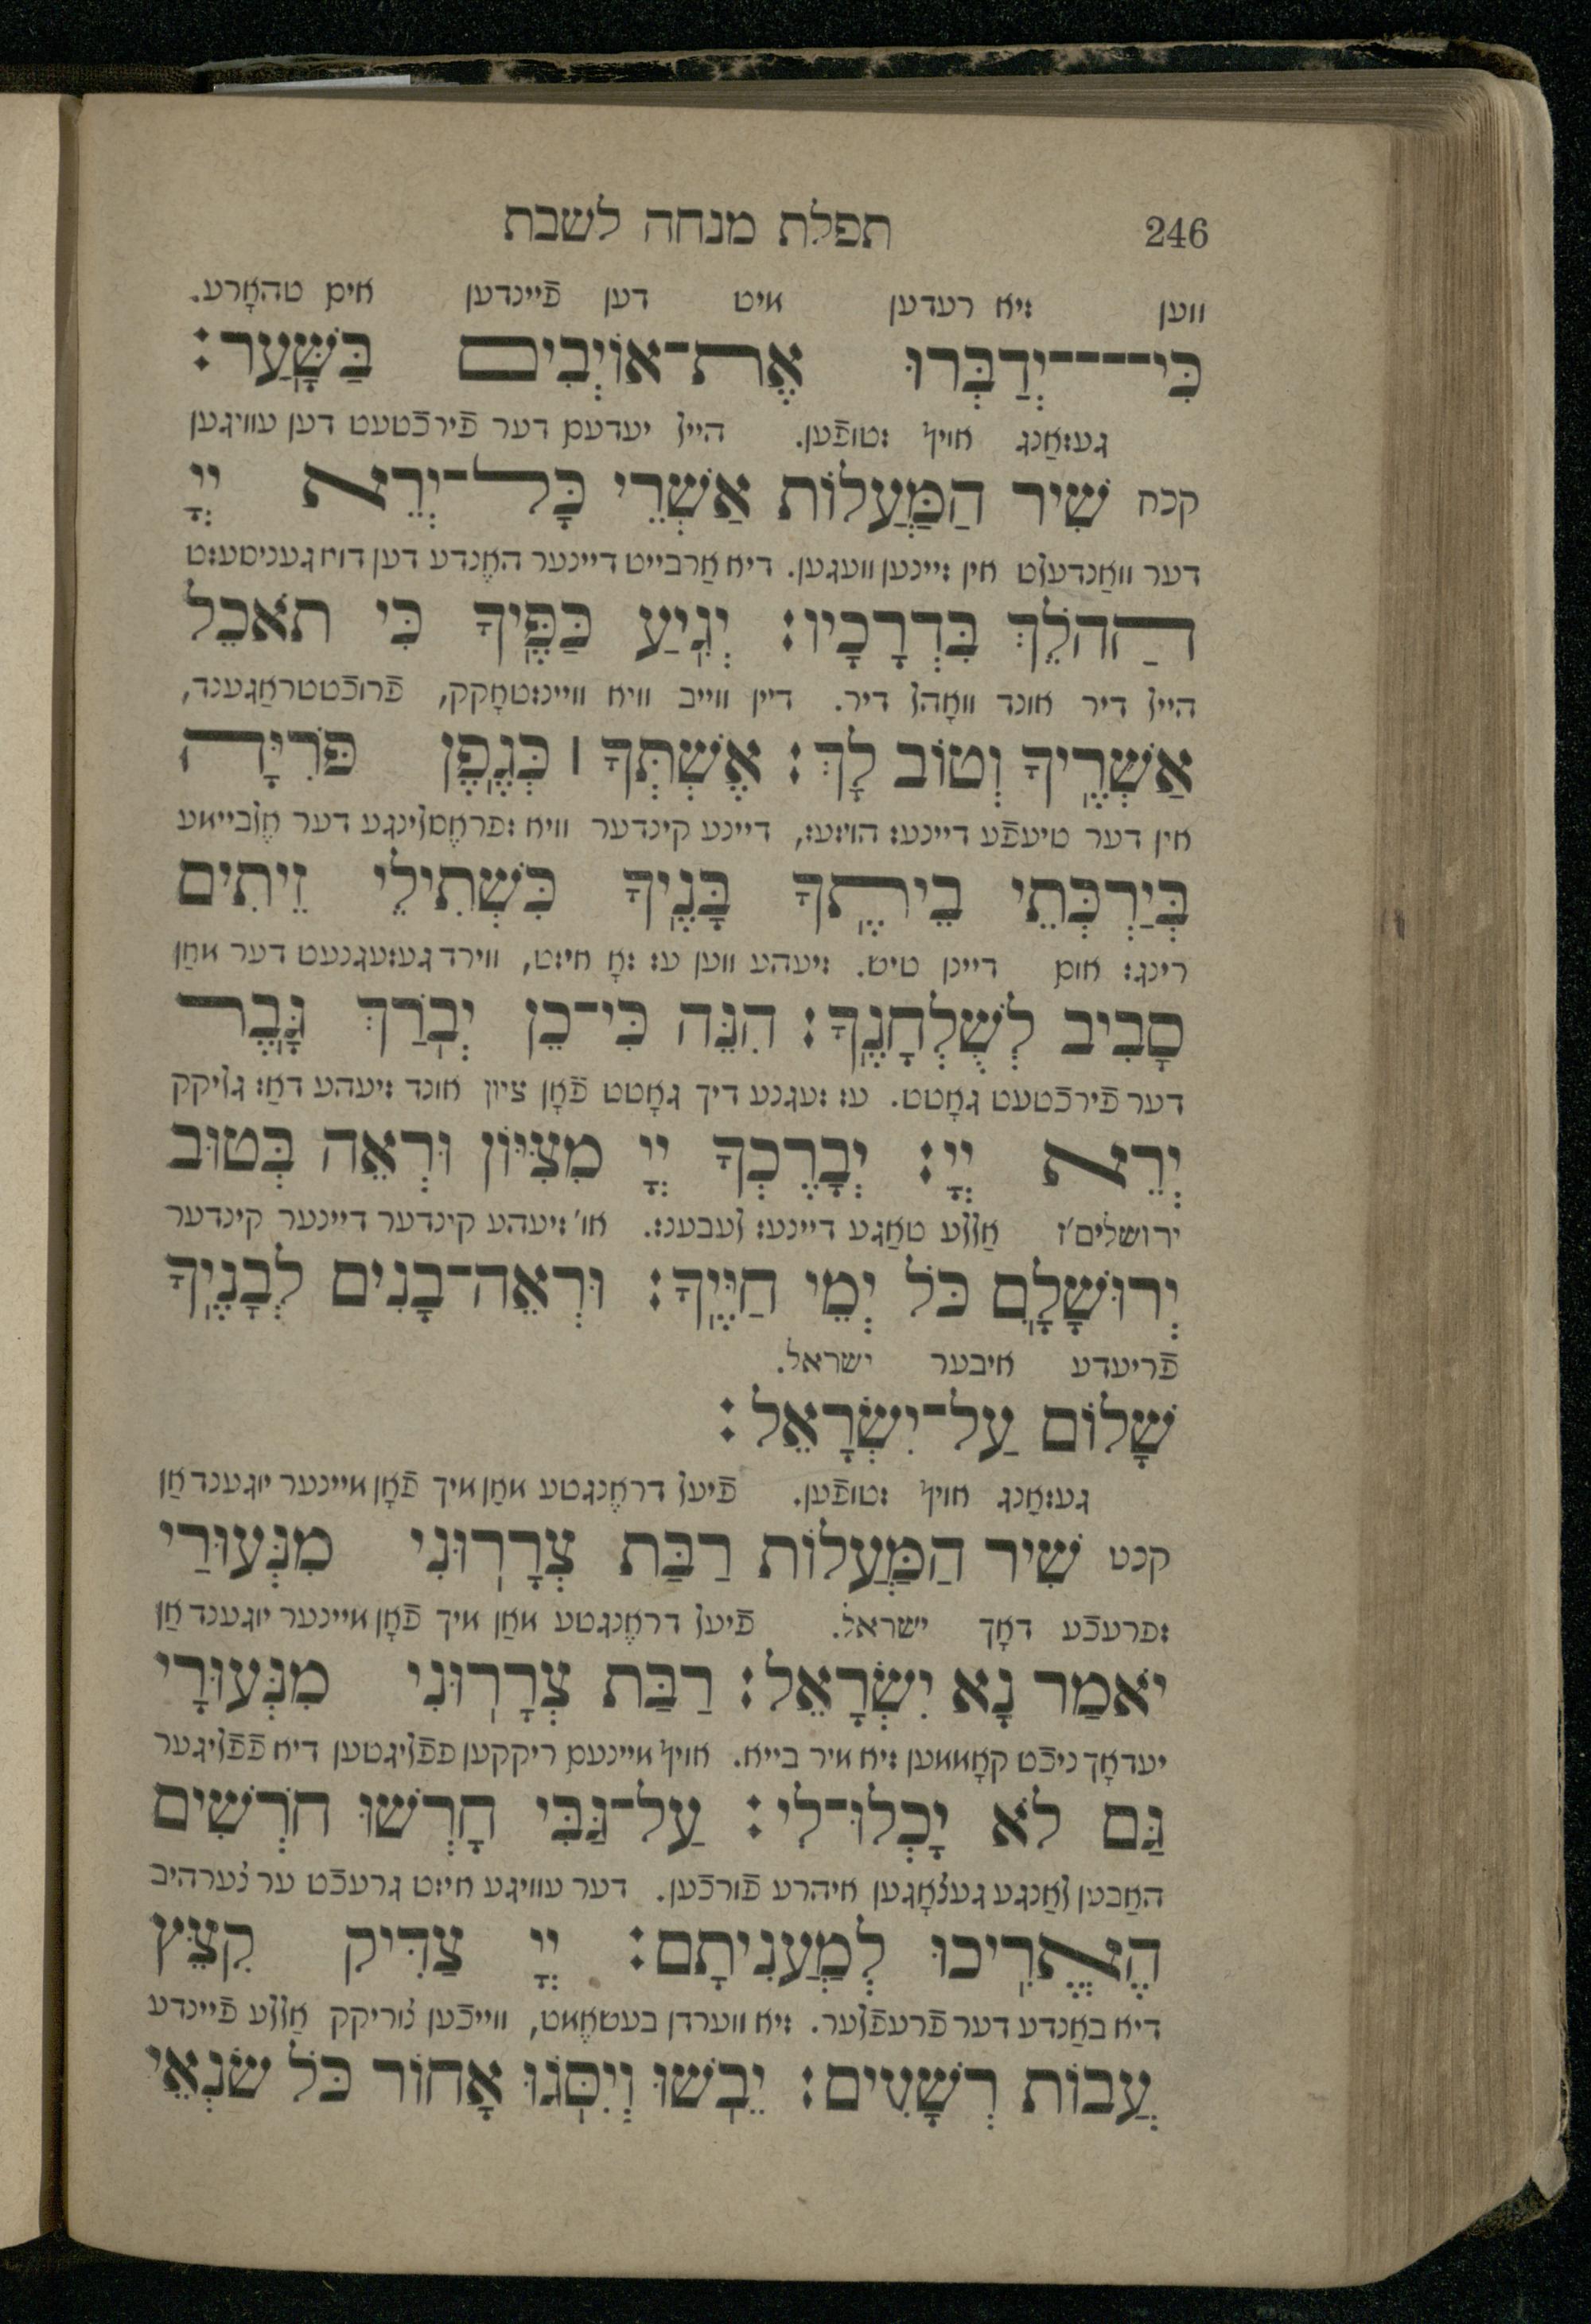 246 תפלת מנחה לשבת
ווען זיא רעדען מיט דען פֿיינדען אים טהאָרע.
כִּי־יְדַבְּרוּ אֶת־אוֹיְבִים בַּשָּׁעַר׃
געזאַנג אויף שטופֿען. הייל יעדעם דער פֿירכֿטעט דען עוויגען
קכח שִׁיר הַמַּעֲלוֹת אַשְׁרֵי כָּל־יְרֵא יְיָ
דער וואַנדעלט אין זיינען וועגען. דיא אַרבייט דיינער האֶנדע דען דוא געניסעזט
הַהֹלֵךְ בִּדְרָכָיו׃ יְגִיעַ כַּפֶּיךָ כִּי תֹאכֵל
הייל דיר אונד וואָהל דיר. דיין ווייב וויא ויינשטאָקק, פֿרוכֿטטראַגענד,
אַשְׁרֶיךָ וְטוֹב לָךְ׃ אֶשְׁתְּךָ ׀ כְּגֶפֶן פֹּרִיָּה
אין דער טיעפֿע דיינעז הויזעז, דיינע קינדער וויא שפראֶסלינגע דער אֶלבייאמע
בְּיַרְכְּתֵי בֵיתֶךָ בָּנֶיךָ כִּשְׁתִילֵי זֵיתִים
רינגז אום דיינן טיש. זיעהע ווען עז זאָ איזט, ווירד געזעגנעט דער מאַן
סָבִיב לְשֻׁלְחָנֶךָ׃ הִנֵּה כִּי־כֵן יְבֹרַךְ גָּבֶר
דער פֿירכֿטעט גאָטט. עז זעגנע דיך גאָטט פֿאָן ציון אונד זיעהע דאַז גליקק
יְרֵא יְיָ׃ יְבָרֶכְךָ יְיָ מִצִּיּוֹן וּרְאֵה בְּטוּב
ירושלים'ז אַללע טאַגע דיינעז לעבענז. או' זיעהע קינדער דיינער קינדער
יְרוּשָׁלָםִ כֹּל יְמֵי חַיֶּיךָ׃ וּרְאֵה־בָנִים לְבָנֶיךָ
פֿריעדע איבער ישראל.
שָׁלוֹם עַל־יִשְׂרָאֵל׃
געזאַנג אויף שטופֿען. פֿיעל דראֶנגטע מאַן מיך פֿאָן מיינער יוגענד אַן
קכט שִׁיר הַמַּעֲלוֹת רַבַּת צְרָרוּנִי מִנְּעוּרַי
שפרעכֿע דאָך ישראל. פֿיעל דראֶנגטע מאַן מיך פֿאָן מיינער יוגענד אַן
יֹאמַר נָא יִשְׂרָאֵל׃ רַבַּת צְרָרוּנִי מִנְּעוּרָי
יעדאָך ניכֿט קאָממען זיא מיר בייא. אויף מיינעם ריקקען פפֿליגטען דיא פפֿליגער
גַּם לֹא יָכְלוּ־לִי׃ עַל־גַּבִּי חָרְשׁוּ חֹרְשִׁים
האַבען לאַנגע געצאָגען איהרע פֿורכֿען. דער עוויגע איזט גרעכֿט ער צערהיב
הֶאֱרִיכוּ לְמַעֲנִיתָם׃ יְיָ צַדִּיק קִצֵּץ
דיא באַנדע דער פֿרעפֿלער. זיא ווערדן בעשאֶמט, ווייכֿען צוריקק אַללע פֿיינדע
עֲבוֹת רְשָׁעִים׃ יֵבֹשׁוּ וְיִסֹּגוּ אָחוֹר כֹּל שֹׂנְאֵי